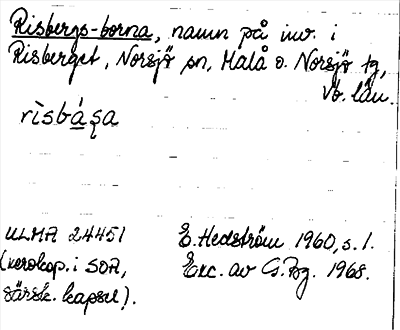 Risbergs-borna, namn på inv. i
Risberget, Norsjö sn, Malå o. Norsjö tg,
Vb. län.
rìsbása
ULMA 24451
(xerokop. i SOA,
särsk. kapsel).
E. Hedström 1960, s. 1.
Exc. av G. Pg. 1968.